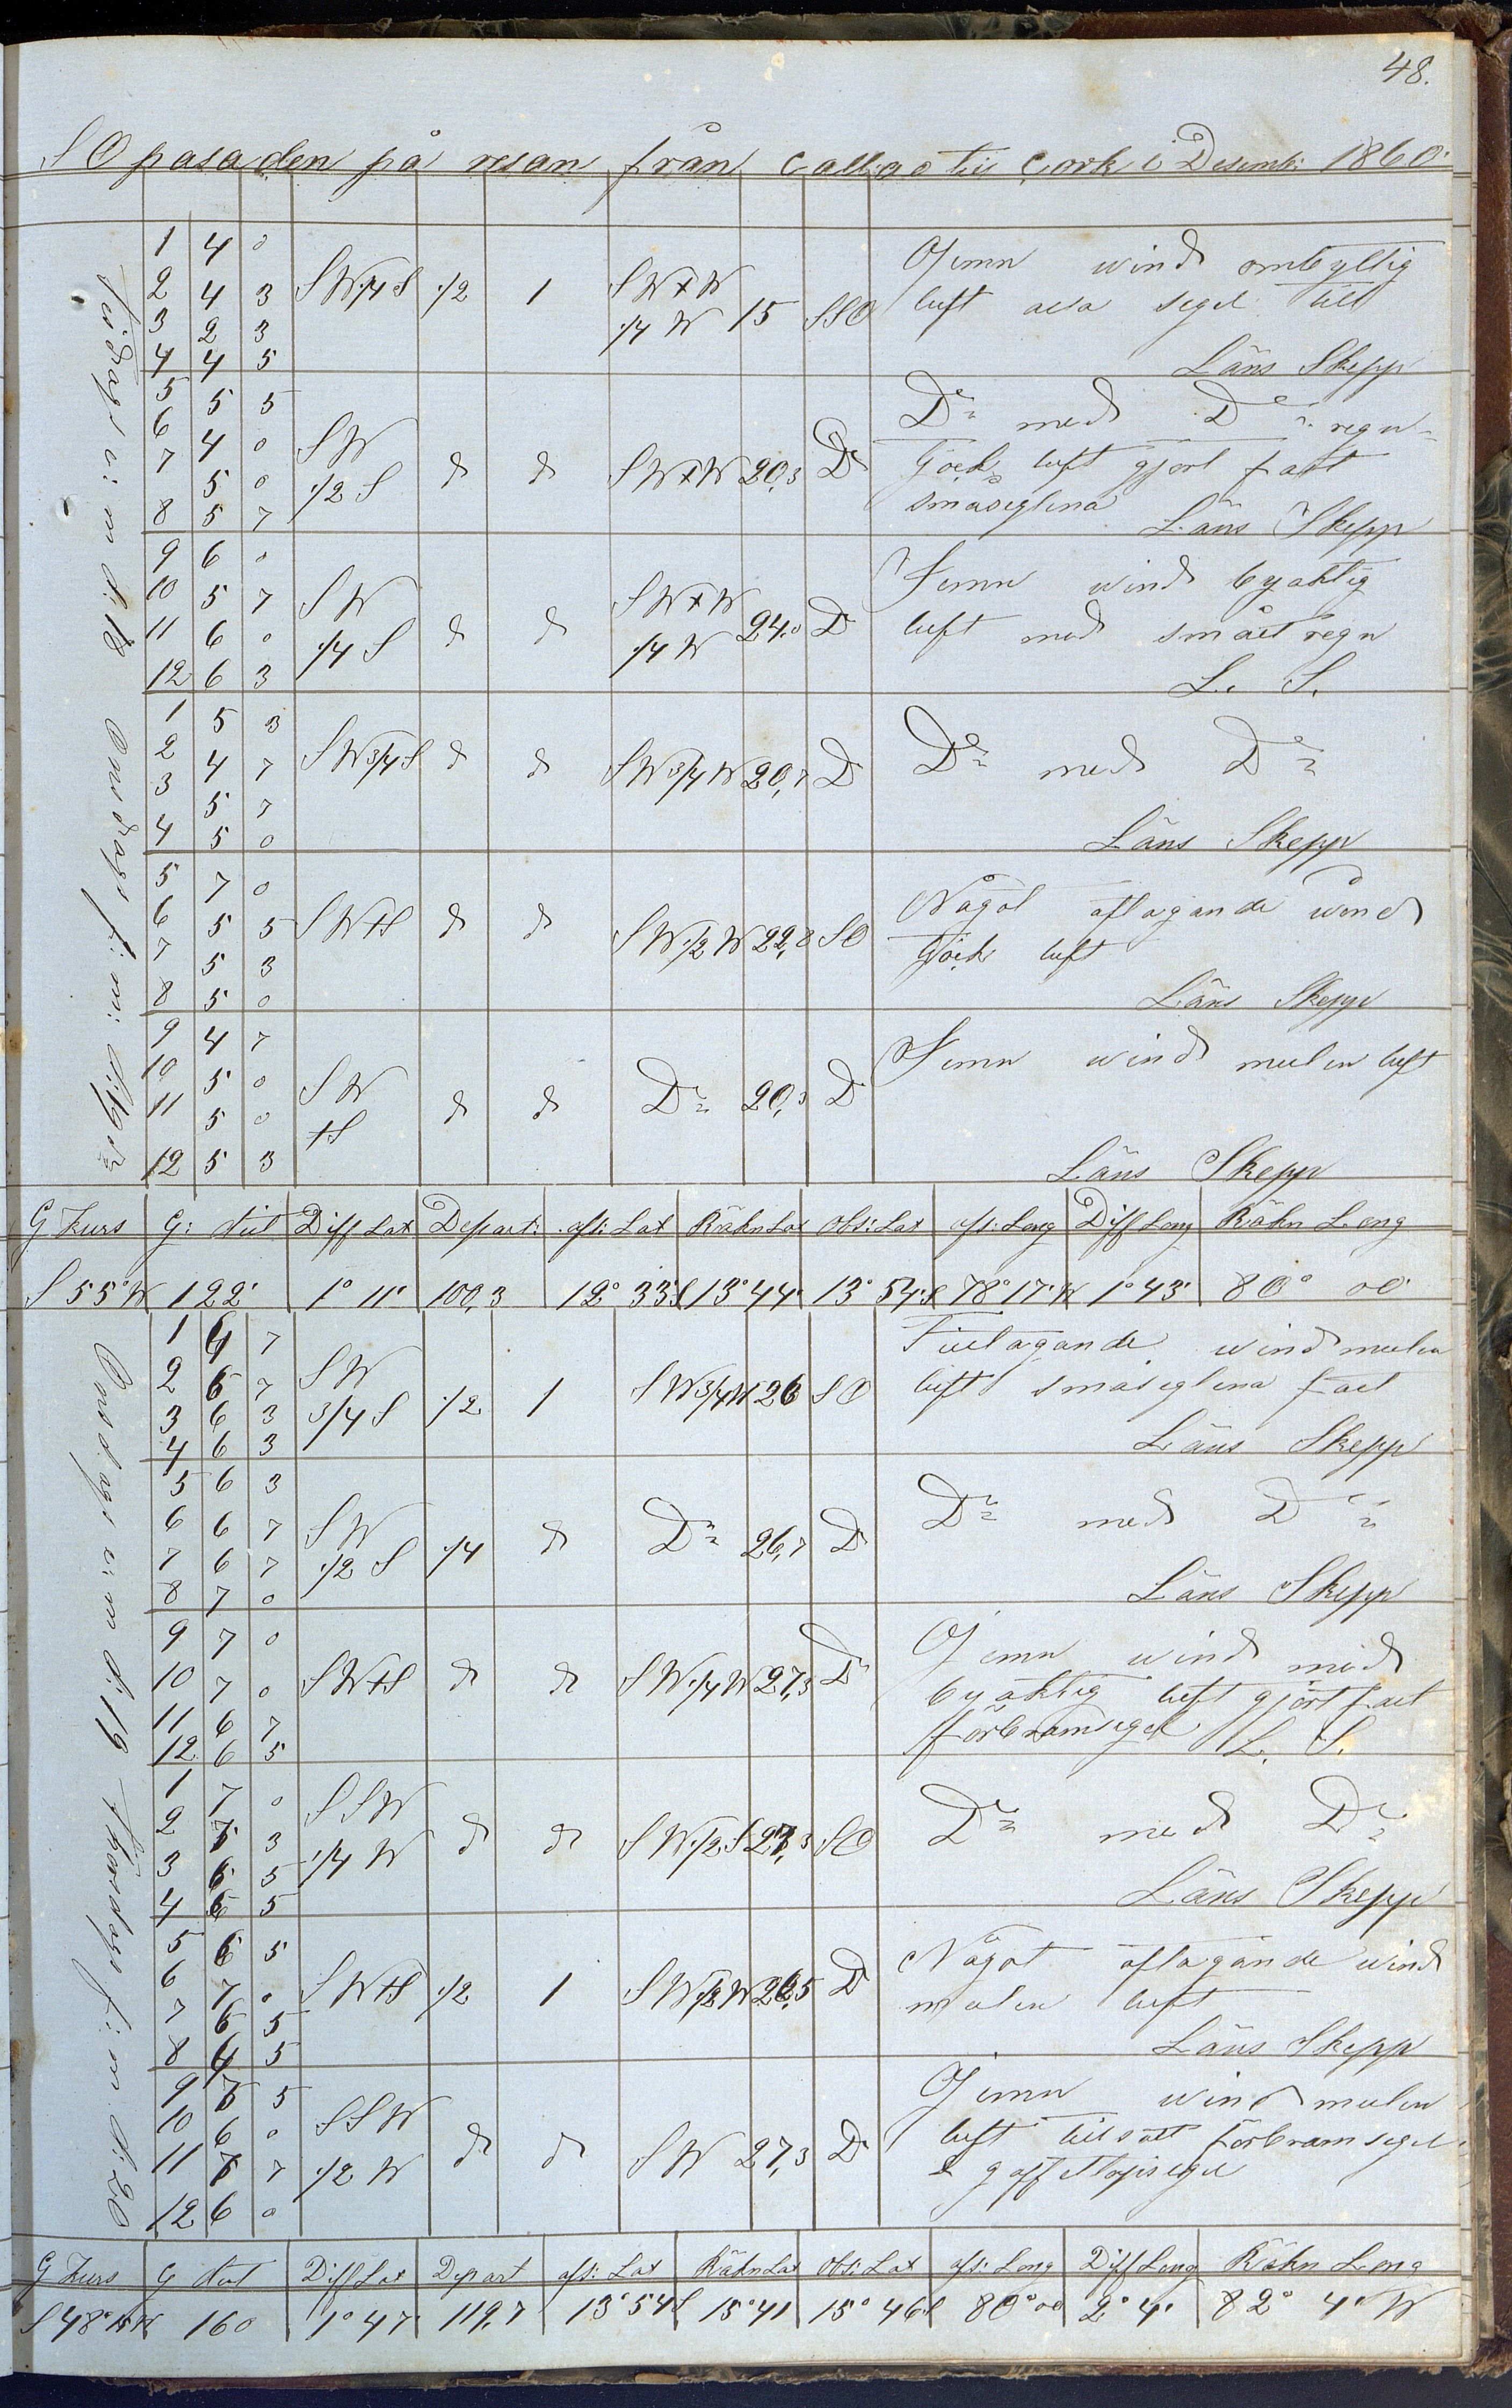 48.
S O pasaden på resan från Callao til Cork i Desemb: 1860
Tisdags e: m d: 18 Onsdags f: m: d: 19
1 4 0
2 4 3 SW 1/4 S 1/2 1 SW x W 1/4 W 15 SSO Jemn wind ombyttlig
3 2 3 luft alla segel till
4 4 5 Läns Skepp
5 5 5 Do med Do regn
6 4 0 SW 1/2 S d d SW x W 20,3 D
7 5 0 tjock luft gjort fast
8 5 7 småseglena Läns Skepp
9 6 0 Jemn wind byaktig
10 5 7 SW 1/4 S d d SW x W 1/4 W 24,0 D
11 6 0 luft med smått regn
12 6 3 L. S.
1 5 3
2 4 7 SW 3/4 S d d SW 3/4 W 20,7 D Do med Do
3 5 7
4 5 0 Läns Skepp
5 7 0 Något aftagande wind
6 5 5 SW + S d d SW 1/2 W 22,8 SO
7 5 3 tjock luft
8 5 0 Läns Skepp
9 4 7 Jemn wind mulen luft
10 5 0 SW + S d d Do 20,3 D
11 5 0
12 5 3 Läns Skepp
G Kurs G: dist Diff Lat Depart: afs: Lat Räkn Lat Obs: Lat afs: Long Diff Long Räkn Long
S 55° W 122' 1° 11' 100,3 12° 33' S 13° 44' 13° 54' S 78° 17' W 1° 43' 80° 00'
Torsdags e: m d: 19 f: m d: 20
1 6 7 Tiltagande wind mulen
2 6 7 SW 3/4 S 1/2 1 SW 3/4 W 26 SO luft småseglena fast
3 6 3
4 6 3 Läns Skepp
5 6 3
6 6 7 SW 1/2 S 1/4 d Do 26,7 D Do med Do
7 6 7
8 7 0 Läns Skepp
9 7 0 Jemn wind med
10 7 0 SW + S d d SW 1/4 W 27,3 D byaktig luft gjort fast
11 6 7 förbramsegel L. S.
12 6 5
1 7 0 SSW
2 7 3 1/4 W d d SW 1/2 S 27,3 SO Do med Do
3 6 5
4 6 5 Läns Skepp
5 6 5 Något aftagande wind
6 7 0 SW + S 1/2 1 SW 1/2 W 26,5 D
7 6 5 mulen luft
8 6 5 Läns Skepp
9 7 5 Jemn wind mulen
10 6 0 SSW 1/2 W d d SW 27,3 D luft tilsatt förbramsegel
11 7 7 & gaffeltopsegel
12 6 0
G Kurs G dist Diff Lat Depart afs: Lat Räkn Lat Obs: Lat afs: Long Diff Long Räkn Long
S 48° W 160 1° 47' 119,7 13° 54' S 15° 41 15° 46' S 80° 00 2° 4' 82° 4' W